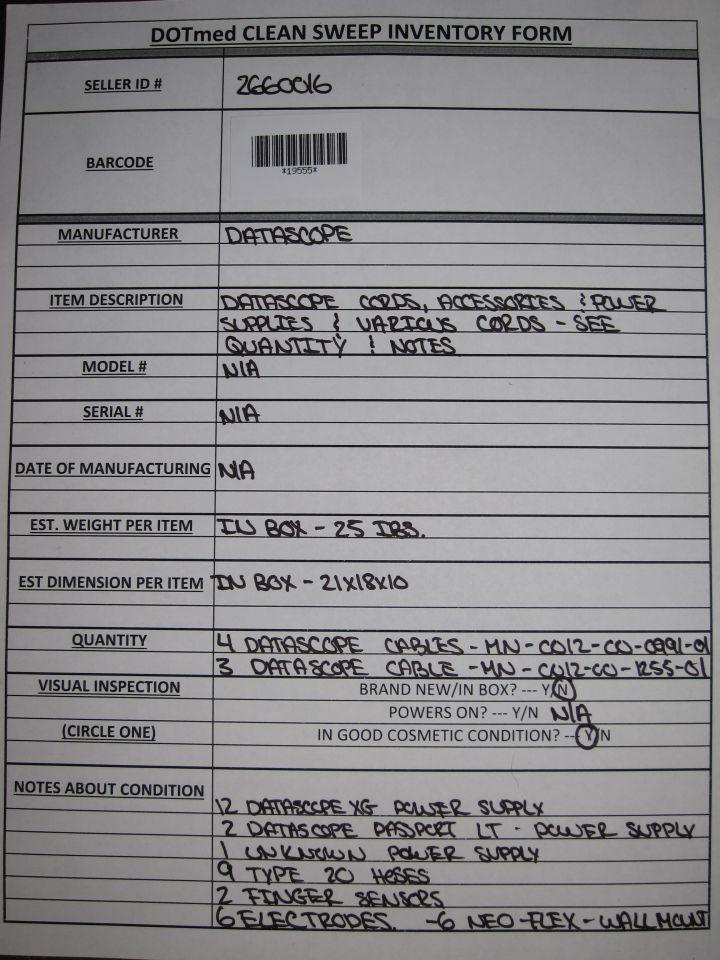 DOTmed CLEAN SWEEP INVENTORY FORM
SELLER ID # 2660016
BARCODE
*19555*
MANUFACTURER DATASCOPE
ITEM DESCRIPTION DATASCOPE CORDS, ACCESSORIES & POWER
SUPPLIES & VARIOUS CORDS - SEE
QUANTITY & NOTES
MODEL # N/A
SERIAL # N/A
DATE OF MANUFACTURING N/A
EST. WEIGHT PER ITEM IN BOX - 25 IBS.
EST DIMENSION PER ITEM IN BOX - 21X18X10
QUANTITY 4 DATASCOPE CABLES - MN - CO12-CO-0991-01
3 DATASCOPE CABLE - MN - CO12-CO-1255-01
VISUAL INSPECTION BRAND NEW/IN BOX? --- Y/N
POWERS ON? --- Y/N N/A
(CIRCLE ONE) IN GOOD COSMETIC CONDITION? --- Y/N
NOTES ABOUT CONDITION
12 DATASCOPE XG POWER SUPPLY
2 DATASCOPE PASSPORT LT - POWER SUPPLY
1 UNKNOWN POWER SUPPLY
9 TYPE 20 HOSES
2 FINGER SENSORS
6 ELECTRODES. - 6 NEO-FLEX-WALL MOUNT